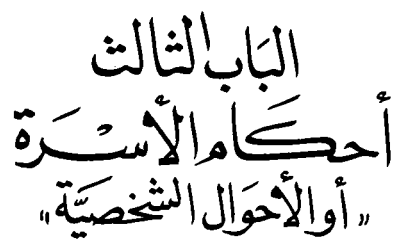 البَاب الثالث
أحكام الأسرة
«أو الأحوَال الشخصيَّة»